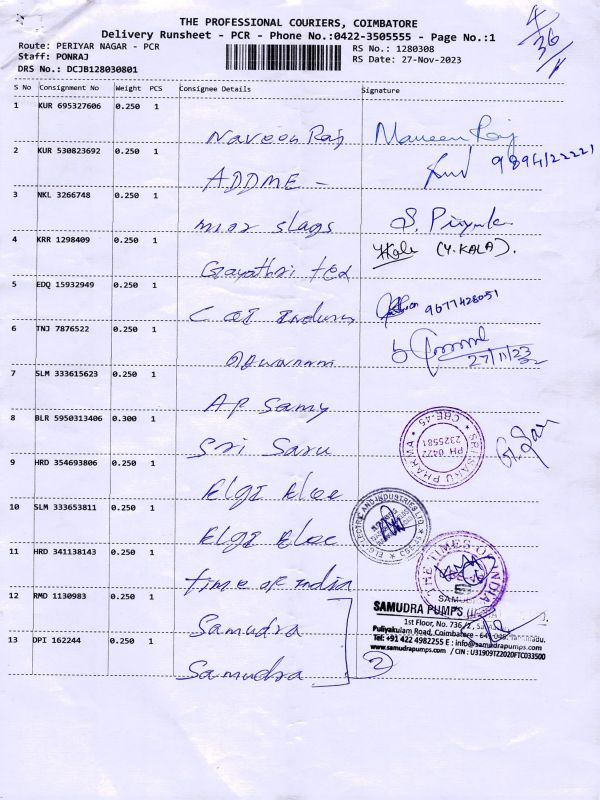 THE PROFESSIONAL COURIERS, COIMBATORE
Delivery Runsheet - PCR - Phone No.:0422-3505555 - Page No.:1
Route: PERIYAR NAGAR - PCR
Staff: PONRAJ
DRS No.: DCJB128030801
RS No.: 1280308
RS Date: 27-Nov-2023
4
36
S No Consignment No Weight PCS Consignee Details Signature
1 KUR 695327606 0.250 1
Naveen Raj Naveen Raj
2 KUR 530823692 0.250 1
9894122221
ADDME -
3 NKL 3266748 0.250 1
slags S. Priyanka
4 KRR 1298409 0.250 1
Kala (Y.KALA).
Gayathri ted
5 EDQ 15932949 0.250 1
9677428051
6 TNJ 7876522 0.250 1
27/11/23
7 SLM 333615623 0.250 1
AP Samy
8 BLR 5950313406 0.300 1
Sri Saru
SRI SARU PHARMA
CBE-45
PH 0422
2325581
9 HRD 354693806 0.250 1
Elgi Elec
10 SLM 333653811 0.250 1
Elgi Elec
ELGI ELECTRIC AND INDUSTRIES LTD.
11 HRD 341138143 0.250 1
time of India
THE TIMES OF INDIA
12 RMD 1130983 0.250 1
Samudra
SAMUDRA PUMPS
1st Floor, No. 736/2,
Puliyakulam Road, Coimbatore -
Tel: +91 422 4982255 E : info@samudrapumps.com
www.samudrapumps.com / CIN : U31909TZ2020FTC033500
13 DPI 162244 0.250 1
Samudra
2